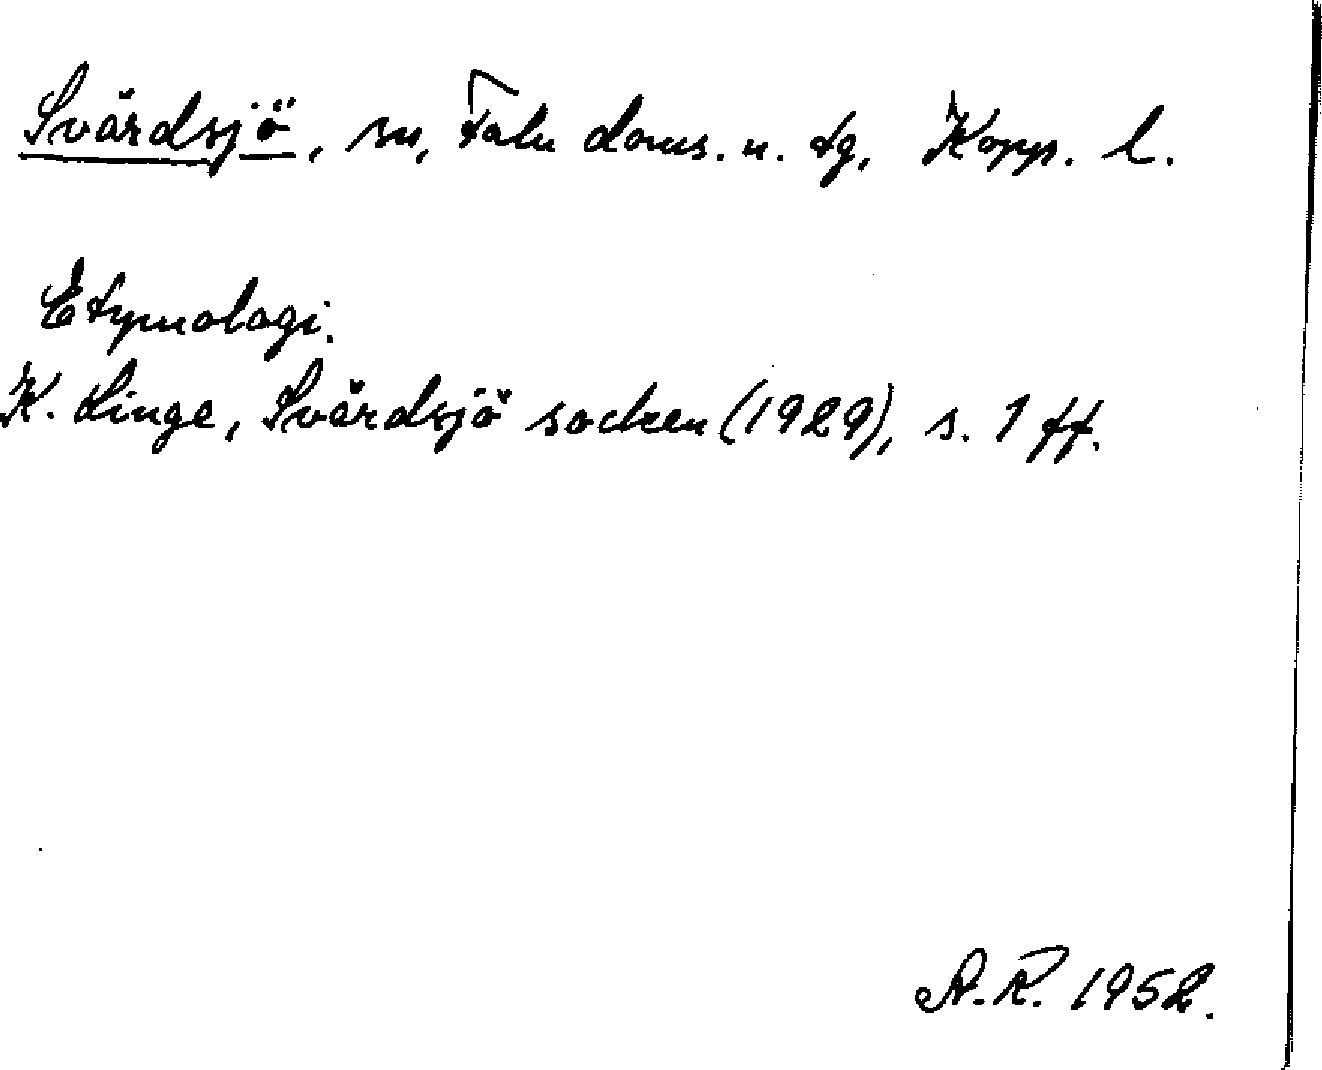 Svärdsjö, sn, Falu doms. o. tg, Kopp. l.
Etymologi.
K. Linge, Svärdsjö socken (1929), s. 1 ff.
A.R. 1952.